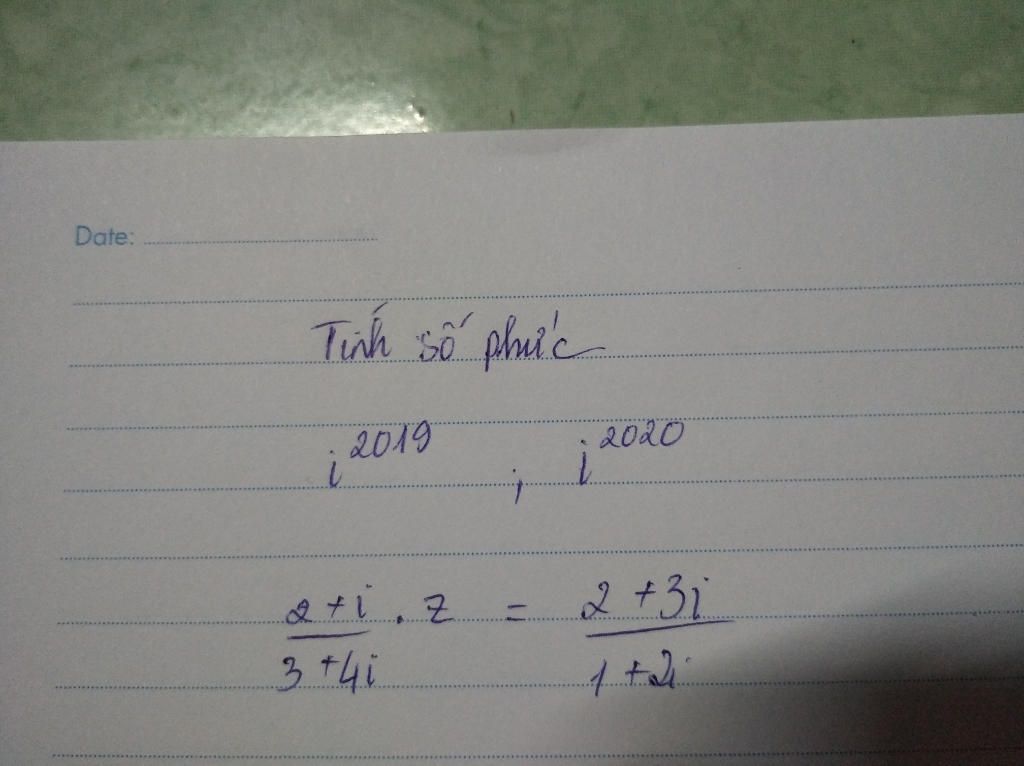 Date:
Tính số phức
i^2019 ; i^2020
2+i / 3+4i . z = 2+3i / 1+2i